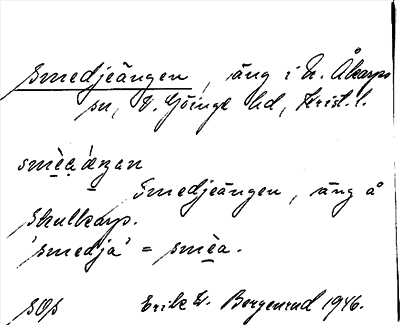 Smedjeängen, äng i N. Åkarps
sn, V. Göinge hd, Krist. l.
smèa̱ängan
Smedjeängen, äng å
Skulkarp.
'smedja' = smèa.
Erik W. Bergenrud 1946.